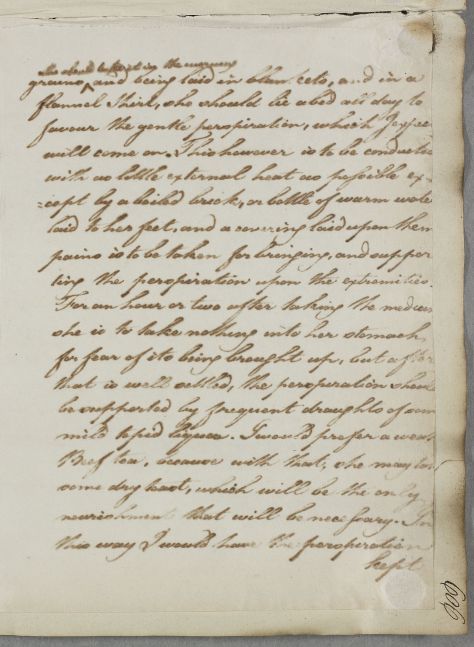 She should take it in the morning
grains, and being laid in blankets, and in a
flannel Shirt, she should lie abed all day to
favour the gentle perspiration, which I expec
will come on. This however is to be conducted
with as little external heat as possible ex-
cept by a boiled brick, or bottle of warm wate
laid to her feet, and a covering laid upon them
pains is to be taken for bringing, and suppor
ting the perspiration upon the extremities.
For an hour or two after taking the medicin
she is to take nothing into her stomach,
for fear of its being brought up, but after
that is well settled, the perspiration shoul
be supported by frequent draughts of som
mild tepid liquor. I would prefer a weak
Beef tea, because with that, she may tak
some dry toast, which will be the only
nourishment that will be necessary. In
this way I would have the perspiration
kept